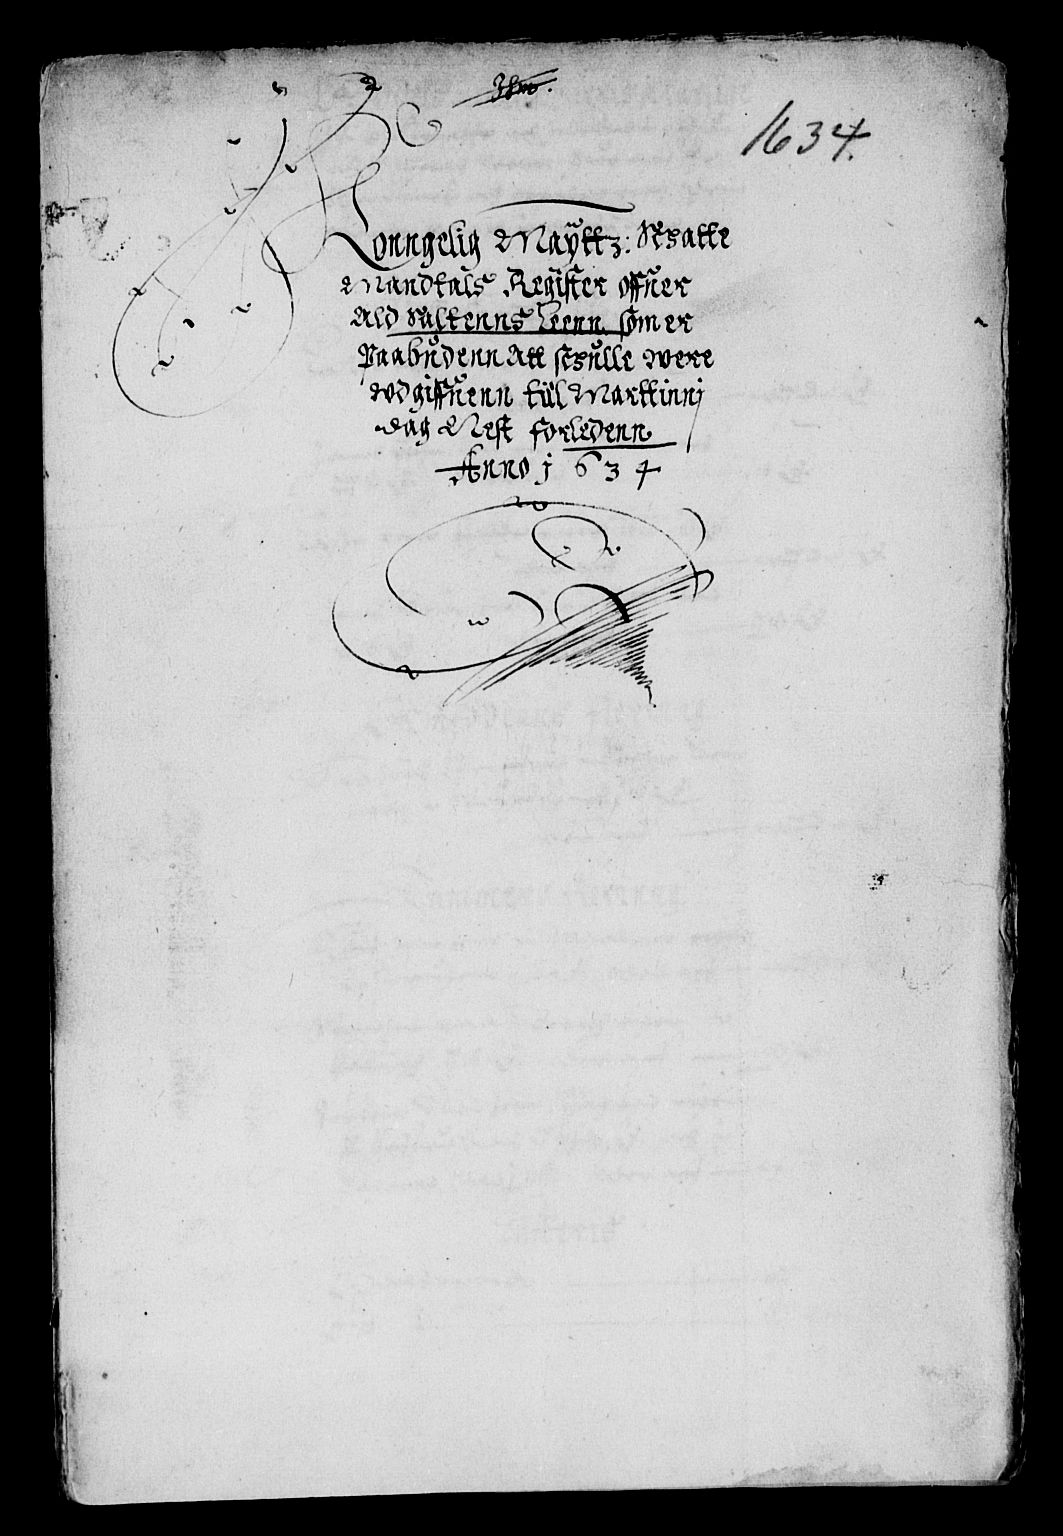 1634.
Konngelig Maÿttz: Skatte
Mandtals Register offuer
Ald Saltenns Leenn som er
Paabudenn Att skulle were
wdgiffuenn till Marttinnj
dag Nest forledenn
Anno j634